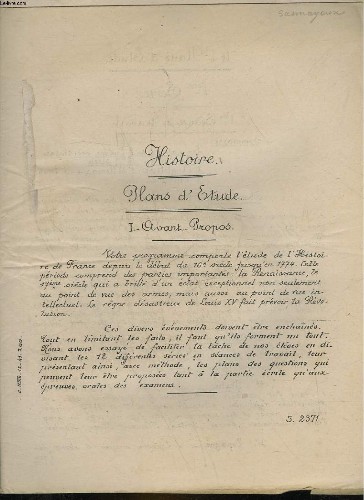 Histoire.
Plans d'Etude.
I- Avant-Propos.
Votre programme comporte l'étude de l'Histoi
re de France depuis le début du 16e siècle jusqu'en 1774. Cette
période comprend des parties importantes: la Renaissance, le
17ème siècle qui a brillé d'un éclat exceptionnel non seulement
au point de vue des armes, mais aussi au point de vue in-
tellectuel. Le règne désastreux de Louis XV fait prévoir la Révo-
lution.
Ces divers évènements doivent être enchaînés.
Tout en limitant les faits, il faut qu'ils forment un tout.
Nous avons essayé de faciliter la tâche de nos élèves en di-
visant les 12 différentes séries en séances de travail, leur
présentant ainsi, avec méthode, les plans des questions qui
peuvent leur être proposées tant à la partie écrite qu'aux
épreuves orales des examens.
S. 2371